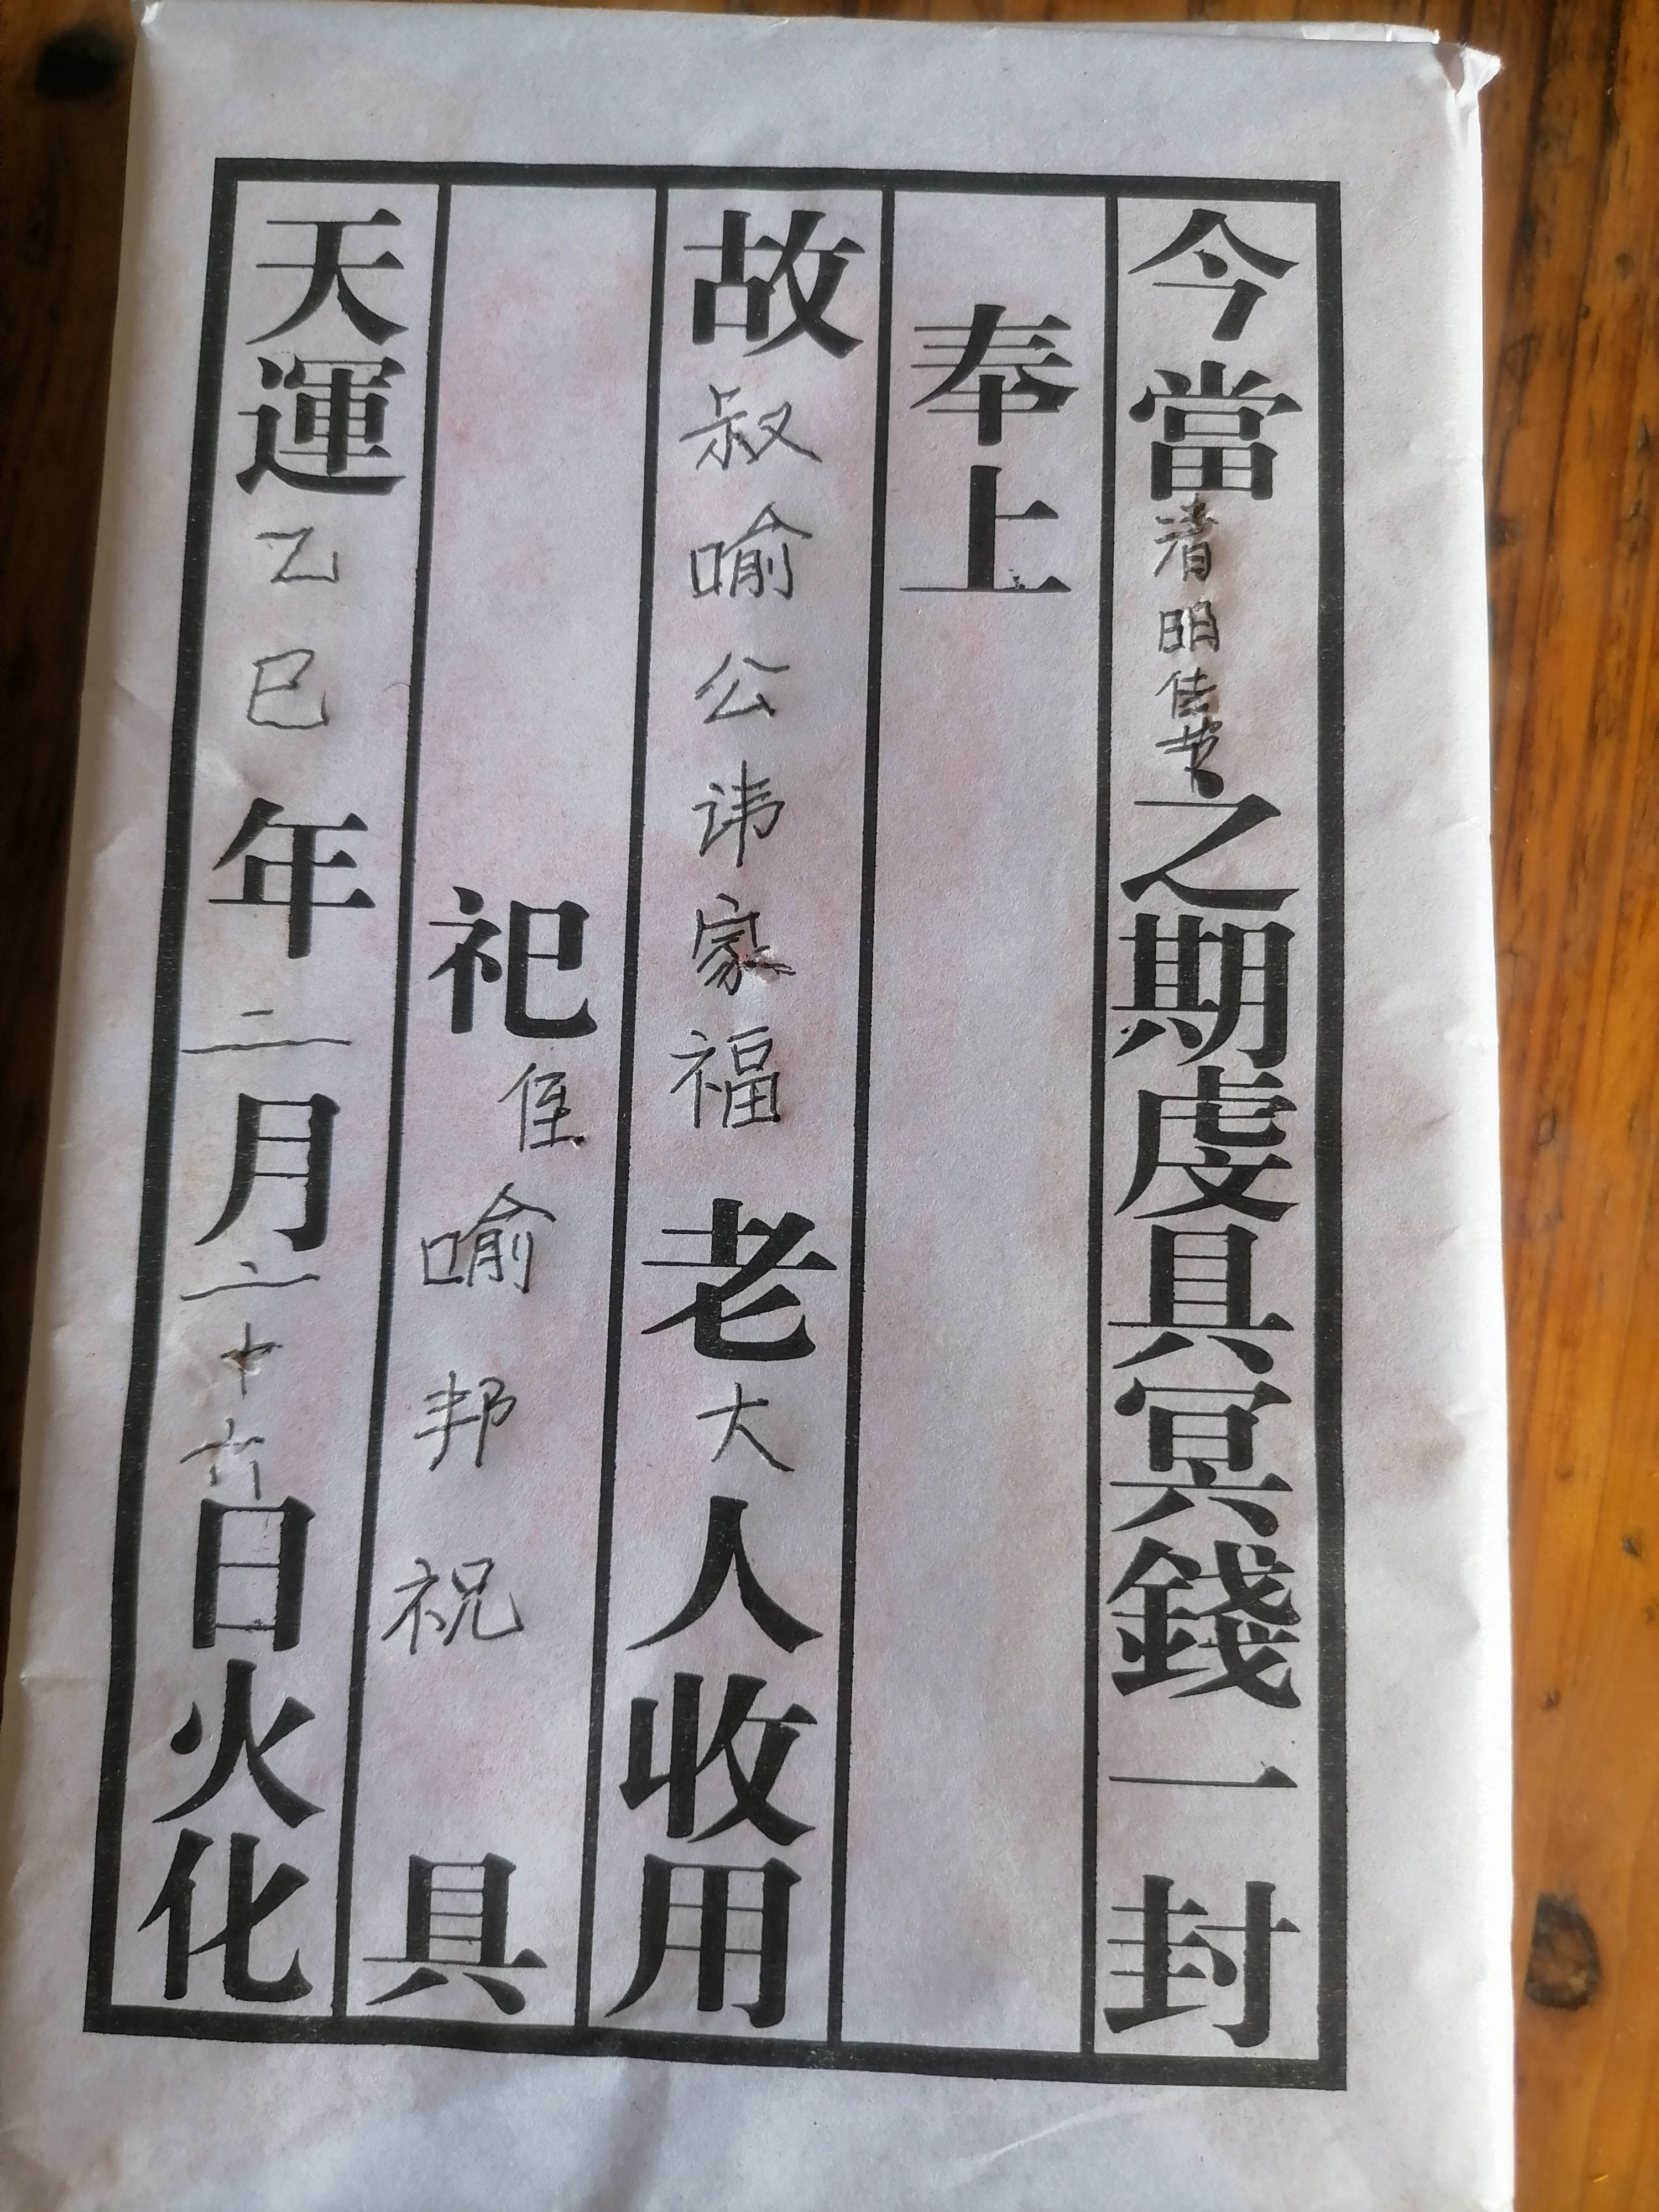 今當清明佳节之期虔具冥錢一封
奉上
故叔喻公讳家福老大人收用
祀侄喻邦祝具
天運乙巳年二月二十六日火化